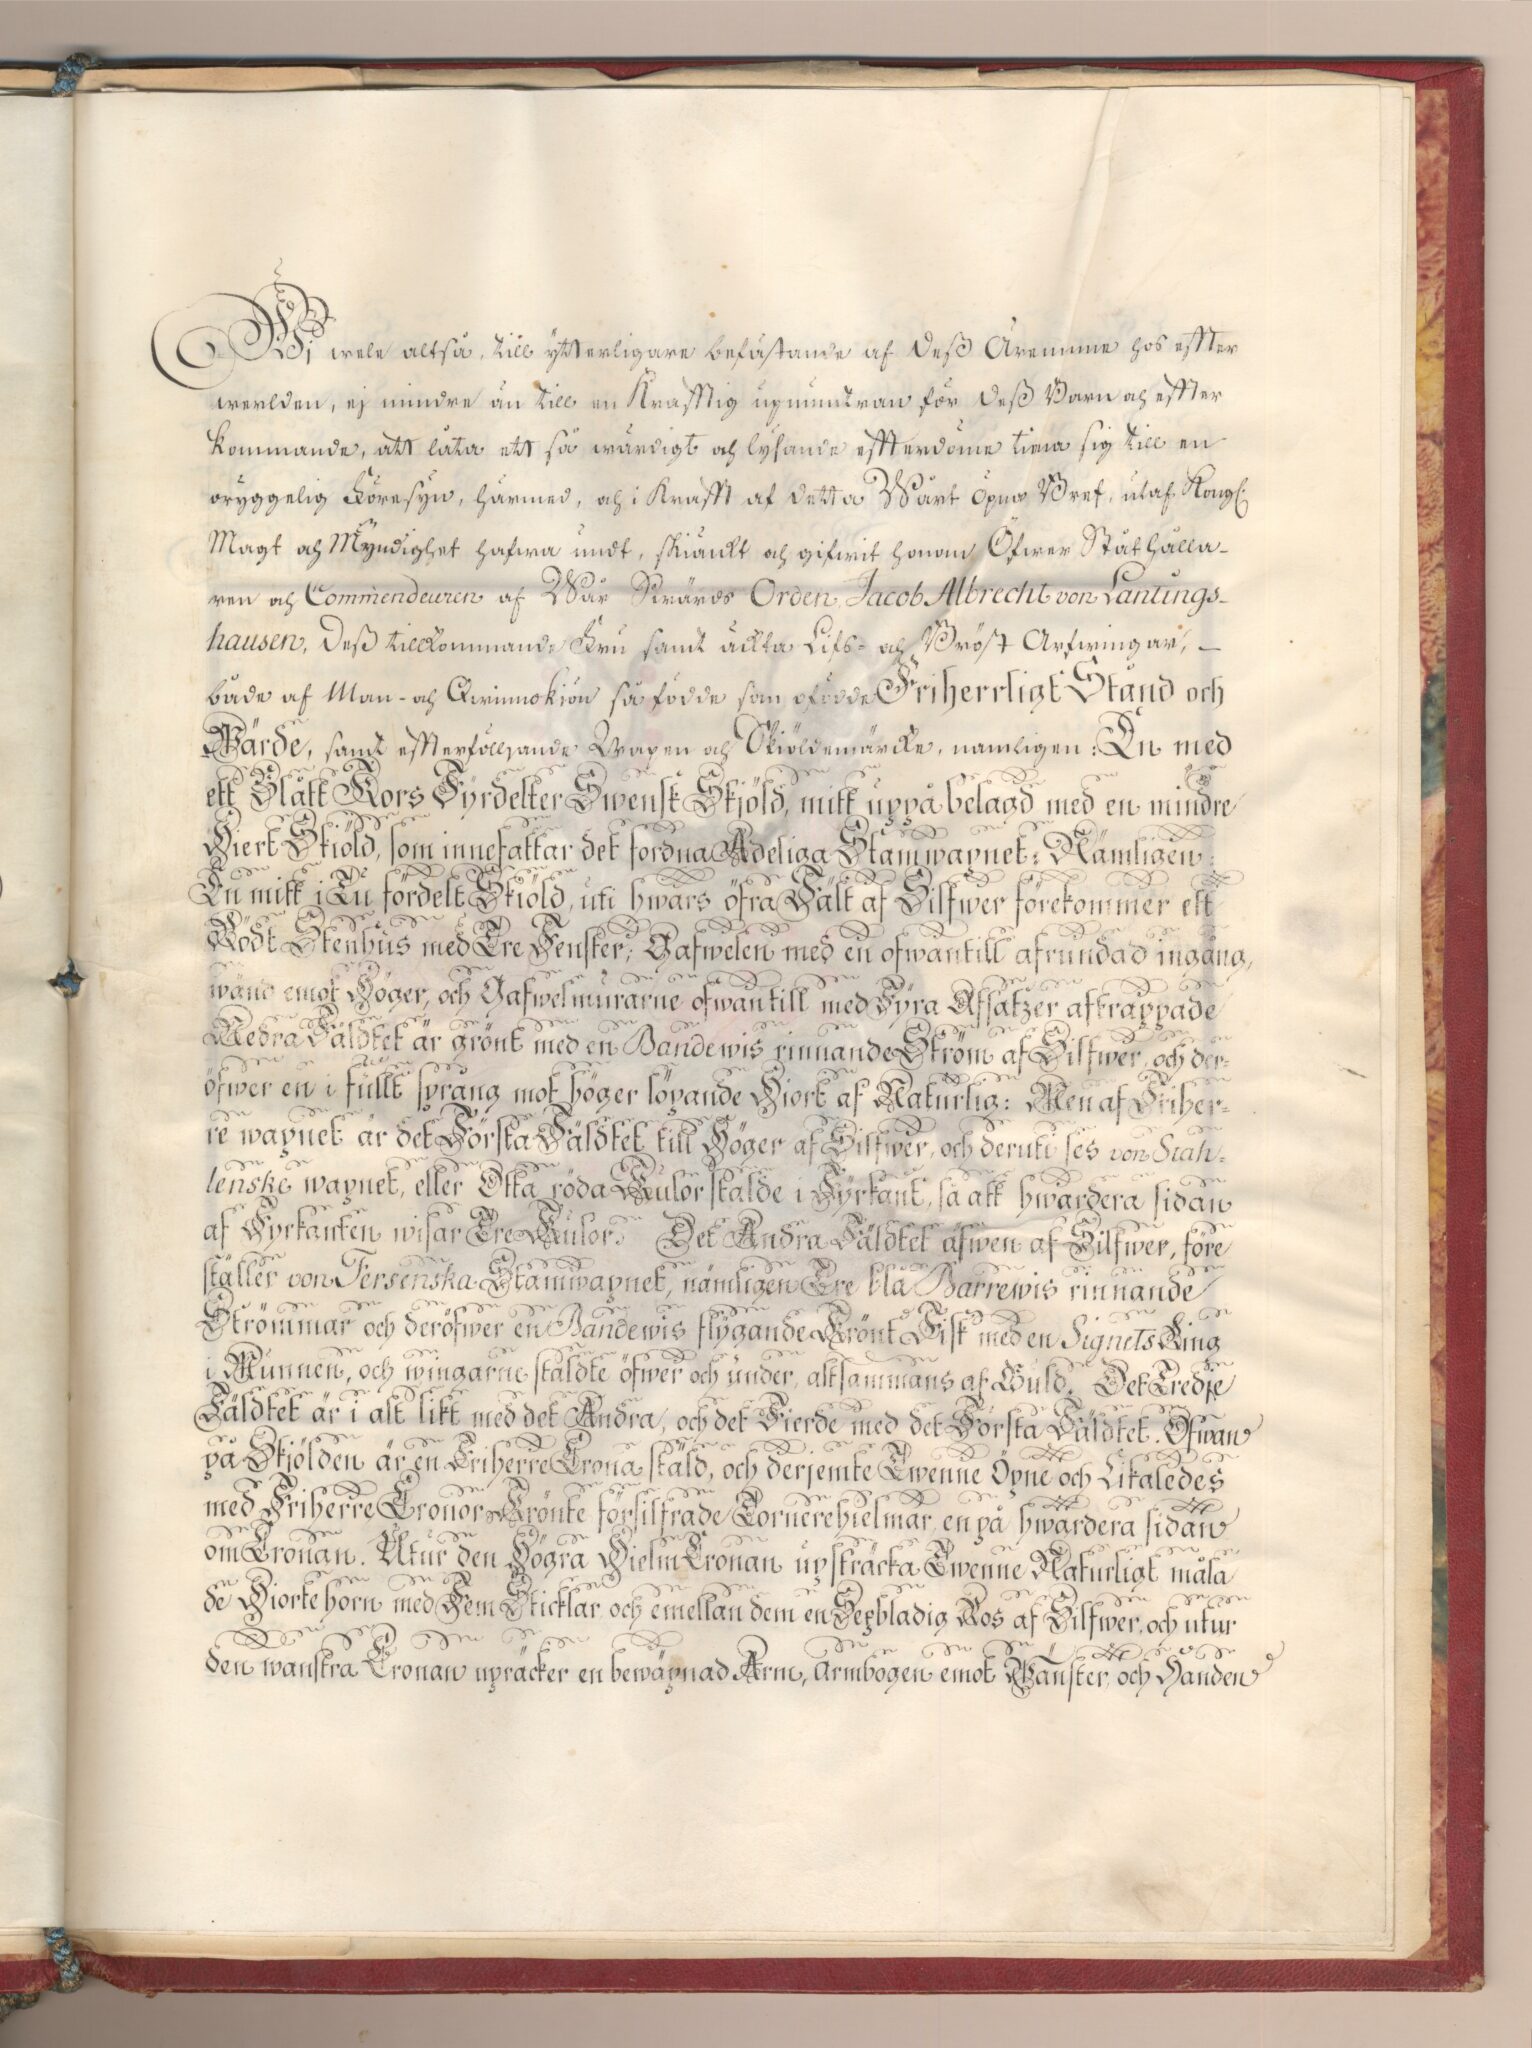 Wi wele altså, till ytterligare befästande af deß Äreminne hos effter
werlden, ej mindre än till en Krafftig upmuntran för deß Barn och effter
kommande, att låta ett så wärdigt och lysande effterdöme tiena sig till en
oryggelig Föresyn, härmed, och i Krafft af detta Wårt öpna Bref, utaf Kongl:
Magt och Myndighet hafwa undt, skiänkt och gifwit honom Öfwer Ståthålla-
ren och Commendeuren af Wår Swärds Orden Jacob Albrecht von Lantings-
hausen, deß tillkommande Fru samt äckta Lifs- och Bröst Arfwingar,
både af Man- och Qwinnokiön så födde som ofödde Friherrligt Stånd och
Wärde, samt effterföljande Wapen och Skiöldemärcke, namligen: En med
ett Blått Kors Fyrdelter Swensk Skjöld, mitt uppå belagd med en mindre
Hiert Skiöld, som innefattar det fordna Adeliga Stamwapnet: Nämligen:
En mitt i Tu fördelt Skiöld, uti hwars öfra Fält af Silfwer förekommer ett
Rödt Stenhus med Tre Fenster; Gafwelen med en ofwantill afrundad ingång,
wänd emot Höger, och Gafwelmurarne ofwantill med Fyra Afsatzer aftrappade
Nedra Fäldtet är grönt med en Bandewis rinnande Ström af Silfwer, och der-
öfwer en i fullt språng mot höger löpande Hiort af Naturlig: Men af Friher-
re wapnet är det Första Fäldtet till Höger af Silfwer, och deruti ses von Stah-
lenske wapnet, eller Otta röda Kulor stalde i Fyrkant, så att hwardera sidan
af Fyrkanten wisar Tre Kulor. Det Andra Fäldtet äfwen af Silfwer, före
ställer von Fersenska Stamwapnet, nämligen Tre blå Barrewis rinnande
Strömmar och deröfwer en Bandewis flygande Krönt Fisk med en Signets Ring
i Munnen, och wingarne stäldte öfwer och under, altsammans af Guld. Det Tredje
Fäldtet är i alt likt med det Andra, och det Fierde med det Första Fäldtet. Ofwan
på Skjölden är en Friherre Crona stäld, och derjemte Twenne Öpne och Likaledes
med Friherre Cronor Krönte försilfrade Tornerehielmar en på hwardera sidan
om Cronan. Utur den Högra Hielm Cronan upsträcka Twenne Naturligt måla
de Hiortehorn med Fem Sticklar och emellan dem en Sexbladig Ros af Silfwer, och utur
den wänstra Cronan upräcker en bewäpnad Arm, Armbogen emot Wänster, och Handen